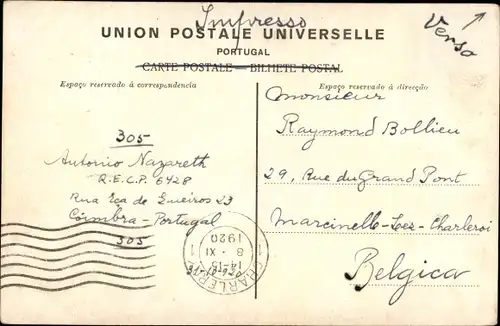 Impresso
Verso
UNION POSTALE UNIVERSELLE
PORTUGAL
CARTE POSTALE - BILHETE POSTAL
Espaço reservado á correspondencia
Espaço reservado á direcção
305
Antonio Nazareth
R.E.C.P. 6428
Rua Eça de Queiros 23
Coimbra - Portugal
305
Monsieur
Raymond Bollieu
29, Rue du Grand Pont
Marcinelle-Lez-Charleroi
Belgica
CHARLEROI
1
14-15
8 · XI
1920